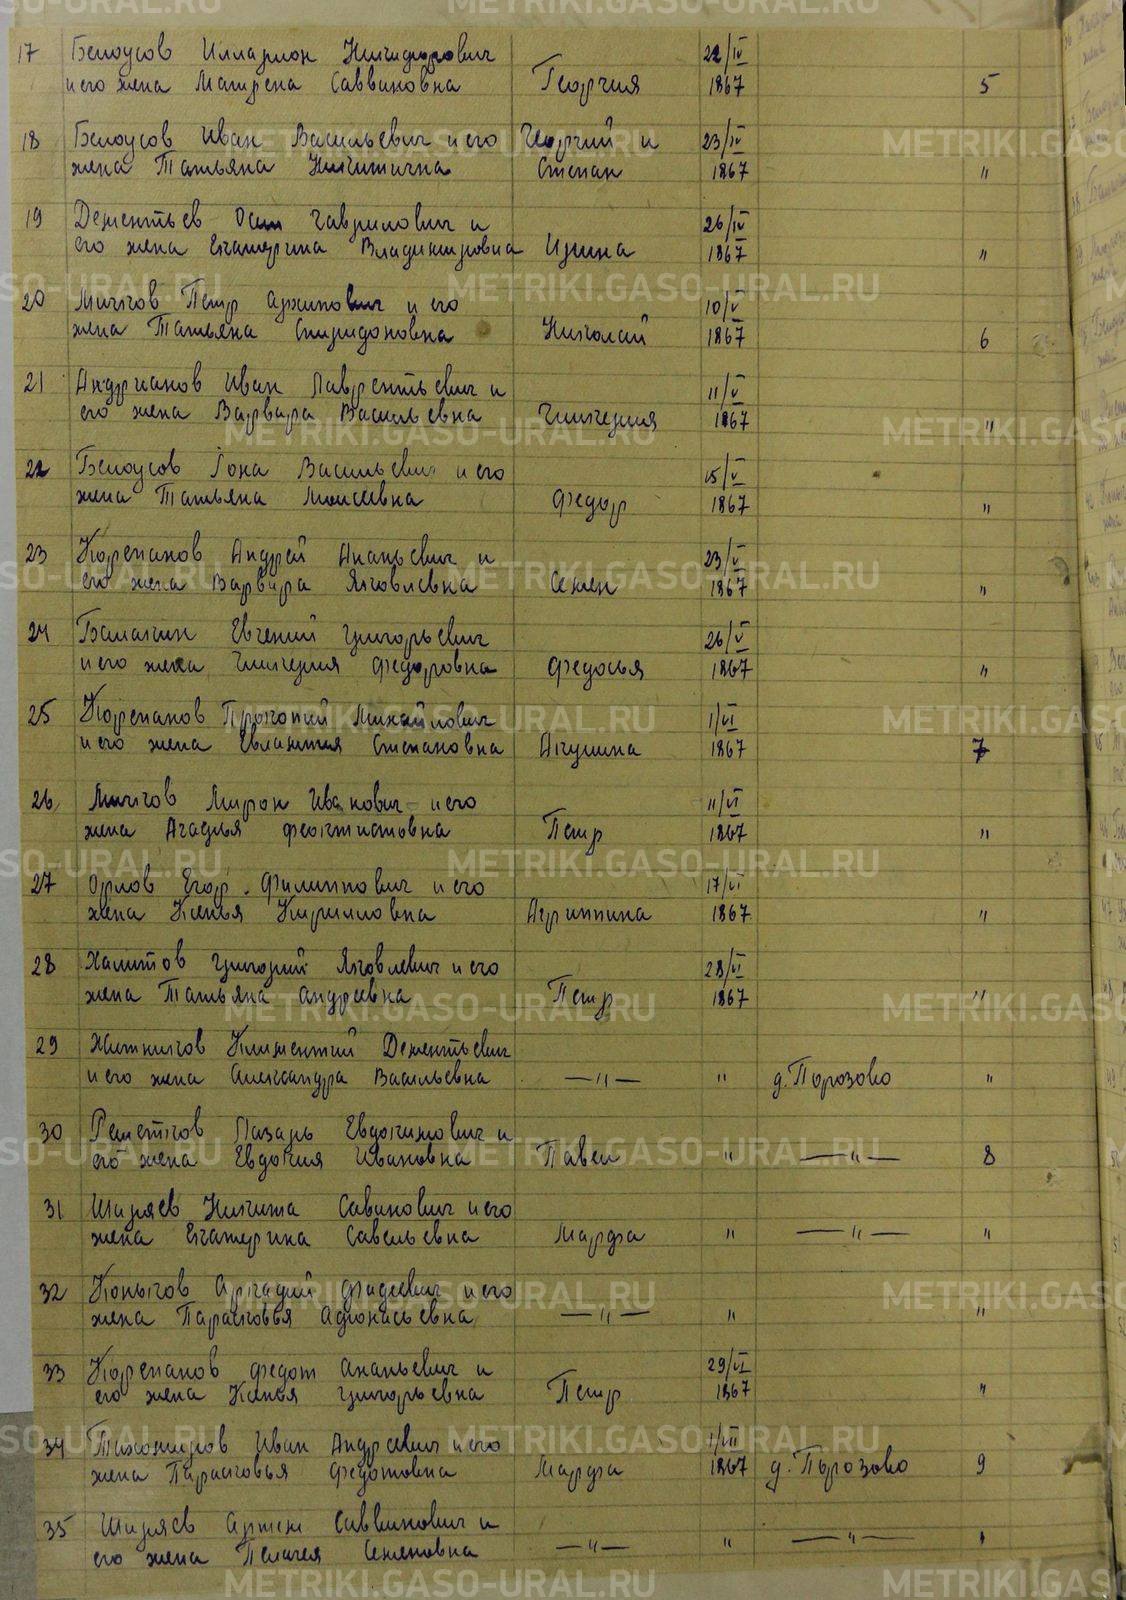 17 Белоусов Илларион Никифорович 22/IV
и его жена Матрена Саввиновна Георгия 1867 5
18 Белоусов Иван Васильевич и его Георгий и 23/IV
жена Татьяна Никитична Степан 1867 "
19 Дементьев Осип Гаврилович и 26/IV
его жена Екатерина Владимировна Ирина 1867 "
20 Мичков Петр Архипович и его 10/V
жена Татьяна Спиридоновна Николай 1867 6
21 Андрианов Иван Лаврентьевич и 11/V
его жена Варвара Васильевна Гликерия 1867 "
22 Белоусов Iона Васильевич и его 15/V
жена Татьяна Моисеевна Федор 1867 "
23 Корепанов Андрей Ананьевич и 23/V
его жена Варвара Яковлевна Семен 1867 "
24 Балакин Евгений Григорьевич 26/V
и его жена Гликерия Федоровна Федосья 1867 "
25 Корепанов Прокопий Михайлович 1/VI
и его жена Евлампия Степановна Акулина 1867 7
26 Мичков Мирон Иванович и его 11/VI
жена Агафья Феоктистовна Петр 1867 "
27 Орлов Егор Филиппович и его 17/VI
жена Ксенья Кирилловна Агриппина 1867 "
28 Халитов Григорий Яковлевич и его 28/VI
жена Татьяна Андреевна Петр 1867 "
29 Климентий Дементьевич
и его жена Александра Васильевна —"— " д. Порозово "
30 Решетков Лазарь Евдокимович и
его жена Евдокия Ивановна Павел " —"— 8
31 Ширяев Никита Савинович и его
жена Екатерина Савельевна Марфа " —"— "
32 Коньков Аркадий Фадеевич и его
жена Парасковья Афонасьевна —"— " "
33 Корепанов Федот Ананьевич и 29/VI
его жена Ксенья Григорьевна Петр 1867 "
34 Тихомиров Иван Андреевич и его 1/VII
жена Парасковья Федотовна Марфа 1867 д. Порозово 9
35 Ширяев Артем Саввинович и
его жена Пелагея Семеновна —"— " —"— "
METRIKI.GASO-URAL.RU